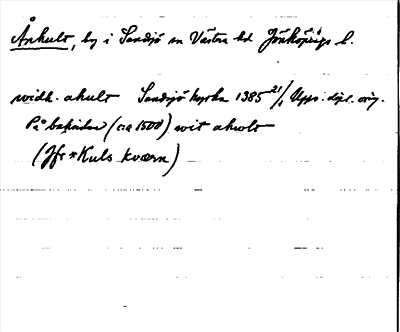 Århult, by i Sandsjö sn Västra hd Jönköpings l.
widh. ahult Sandsjö kyrka 1385 21/1 Upps. dipl. orig.
På baksidan (ca 1500) wit ahwlt
(Jfr *Kuls kværn)